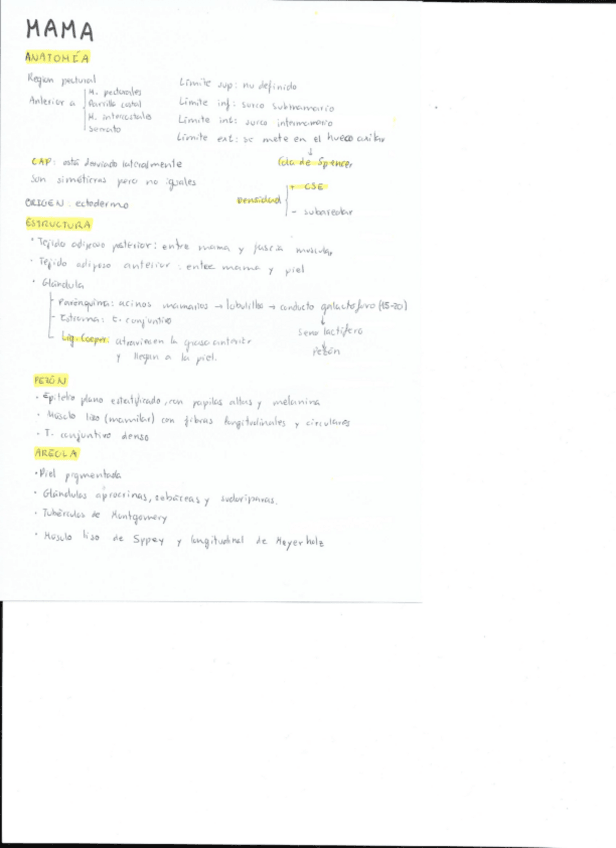 MAMA
ANATOMÍA
Región pectoral
Anterior a
M. pectorales
Parrilla costal
M. intercostales
Serrato
Límite sup: no definido
Límite inf: surco submamario
Límite int: surco intermamario
Límite ext: se mete en el hueco axilar
↓
Cola de Spencer
CAP: está desviado lateralmente
Son simétricas pero no iguales
ORIGEN: ectodermo
Densidad
+ CSE
- subareolar
ESTRUCTURA
· Tejido adiposo posterior: entre mama y fascia muscular
· Tejido adiposo anterior: entre mama y piel
· Glándula
Parénquima: acinos mamarios → lobulillos → conducto galactóforo (15-20)
↓
seno lactífero
↓
Pezón
Estroma: t. conjuntivo
Lig. Cooper: atraviesan la grasa anterior
y llegan a la piel.
PEZÓN
· Epitelio plano estratificado, con papilas altas y melanina
· Músculo liso (mamilar) con fibras longitudinales y circulares
· T. conjuntivo denso
AREOLA
· Piel pigmentada
· Glándulas apocrinas, sebáceas y sudoríparas.
· Tubérculos de Montgomery
· Músculo liso de Sppey y longitudinal de Meyerholz